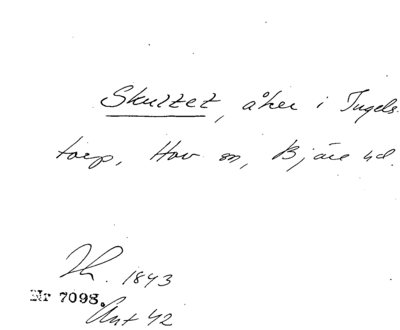 Skuttet, åker i Ingels-
torp, Hov sn, Bjäre hd.
Th. 1843
Nr 7098.
Ant 42